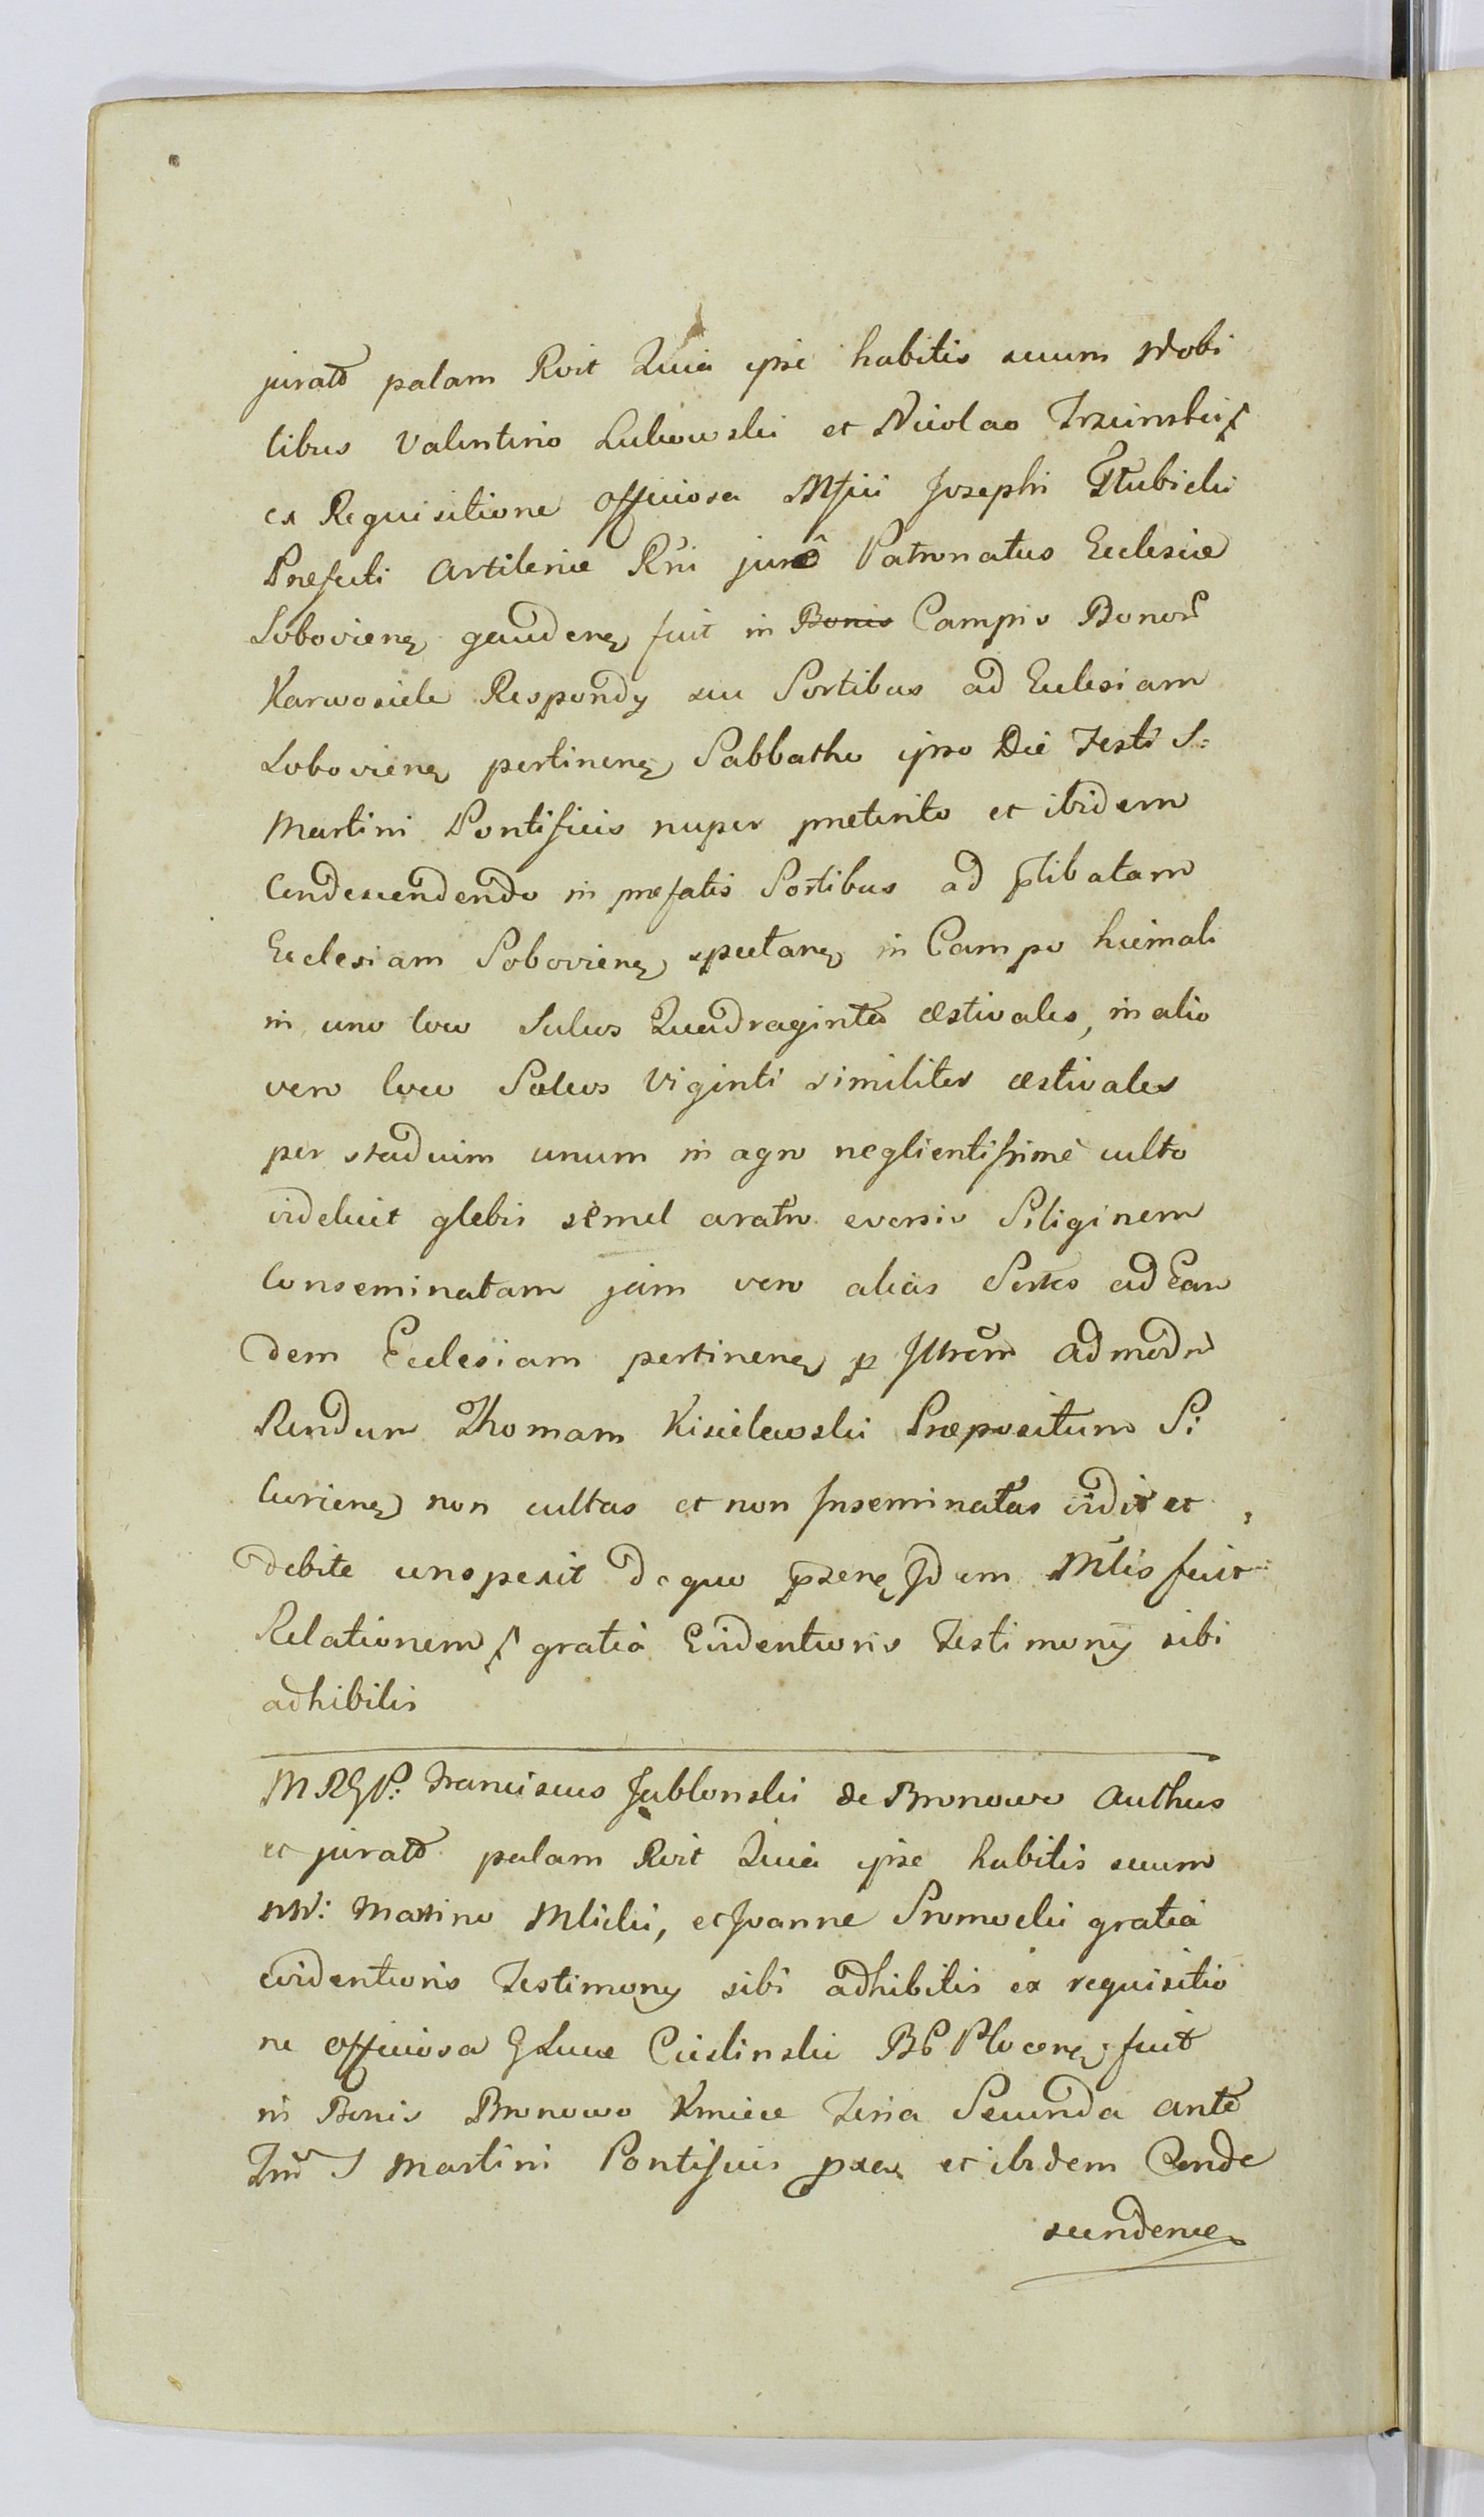 jurato palam Rvit Quia ipse habitis secum Nobi
libus Valentino Lukowski et Nicolao Trzcinski
ex Requisitione officiosa Mfici Josephi Hubicki
Præfecti Artileriæ Rni jure Patronatus Ecclesiæ
Sobovien gauden fuit in Bonis Campis Bonor
Karwosiele Respondy seu Sortibus ad Ecclesiam
Sobovien pertinen Sabbatho ipso Die Festi S:
Martini Pontificis nuper præterito et ibidem
Condescendendo in præfatis Sortibus ad plibatam
Ecclesiam Sobovien spectan in Campo hiemali
in uno loco Sulcos Quadraginta æstivales, in alio
vero loco Sulcos Viginti similiter æstivales
per stadium unum in agro neglientissime culto
videlicet glebis semel aratro eversis Siliginem
Conseminatam jam vero alias Sortes ad Ean
dem Ecclesiam pertinen p Illrem admodum
Rendum Thomam Kisielewski Præpositum S:
Curien non cultas et non Inseminatas vidit et
debite conspexit de quo pszen Idem Mlis fecit
Relationem gratia Evidentioris Testimony sibi
adhibitis
M R G P: Franciscus Jablonski de Bronowo Authus
et jurato palam Rvit Quia ipse habitis secum
NN: Martino Mlicki, et Joanne Sromocki gratia
evidentioris Testimony sibi adhibitis ex requisitio
ne officiosa G Lucæ Cieslinski BG Plocen fuit
in Bonis Bronowo Kmiece Feria Secunda ante
Fm S Martini Pontificis pxa et ibidem Conde
scendence